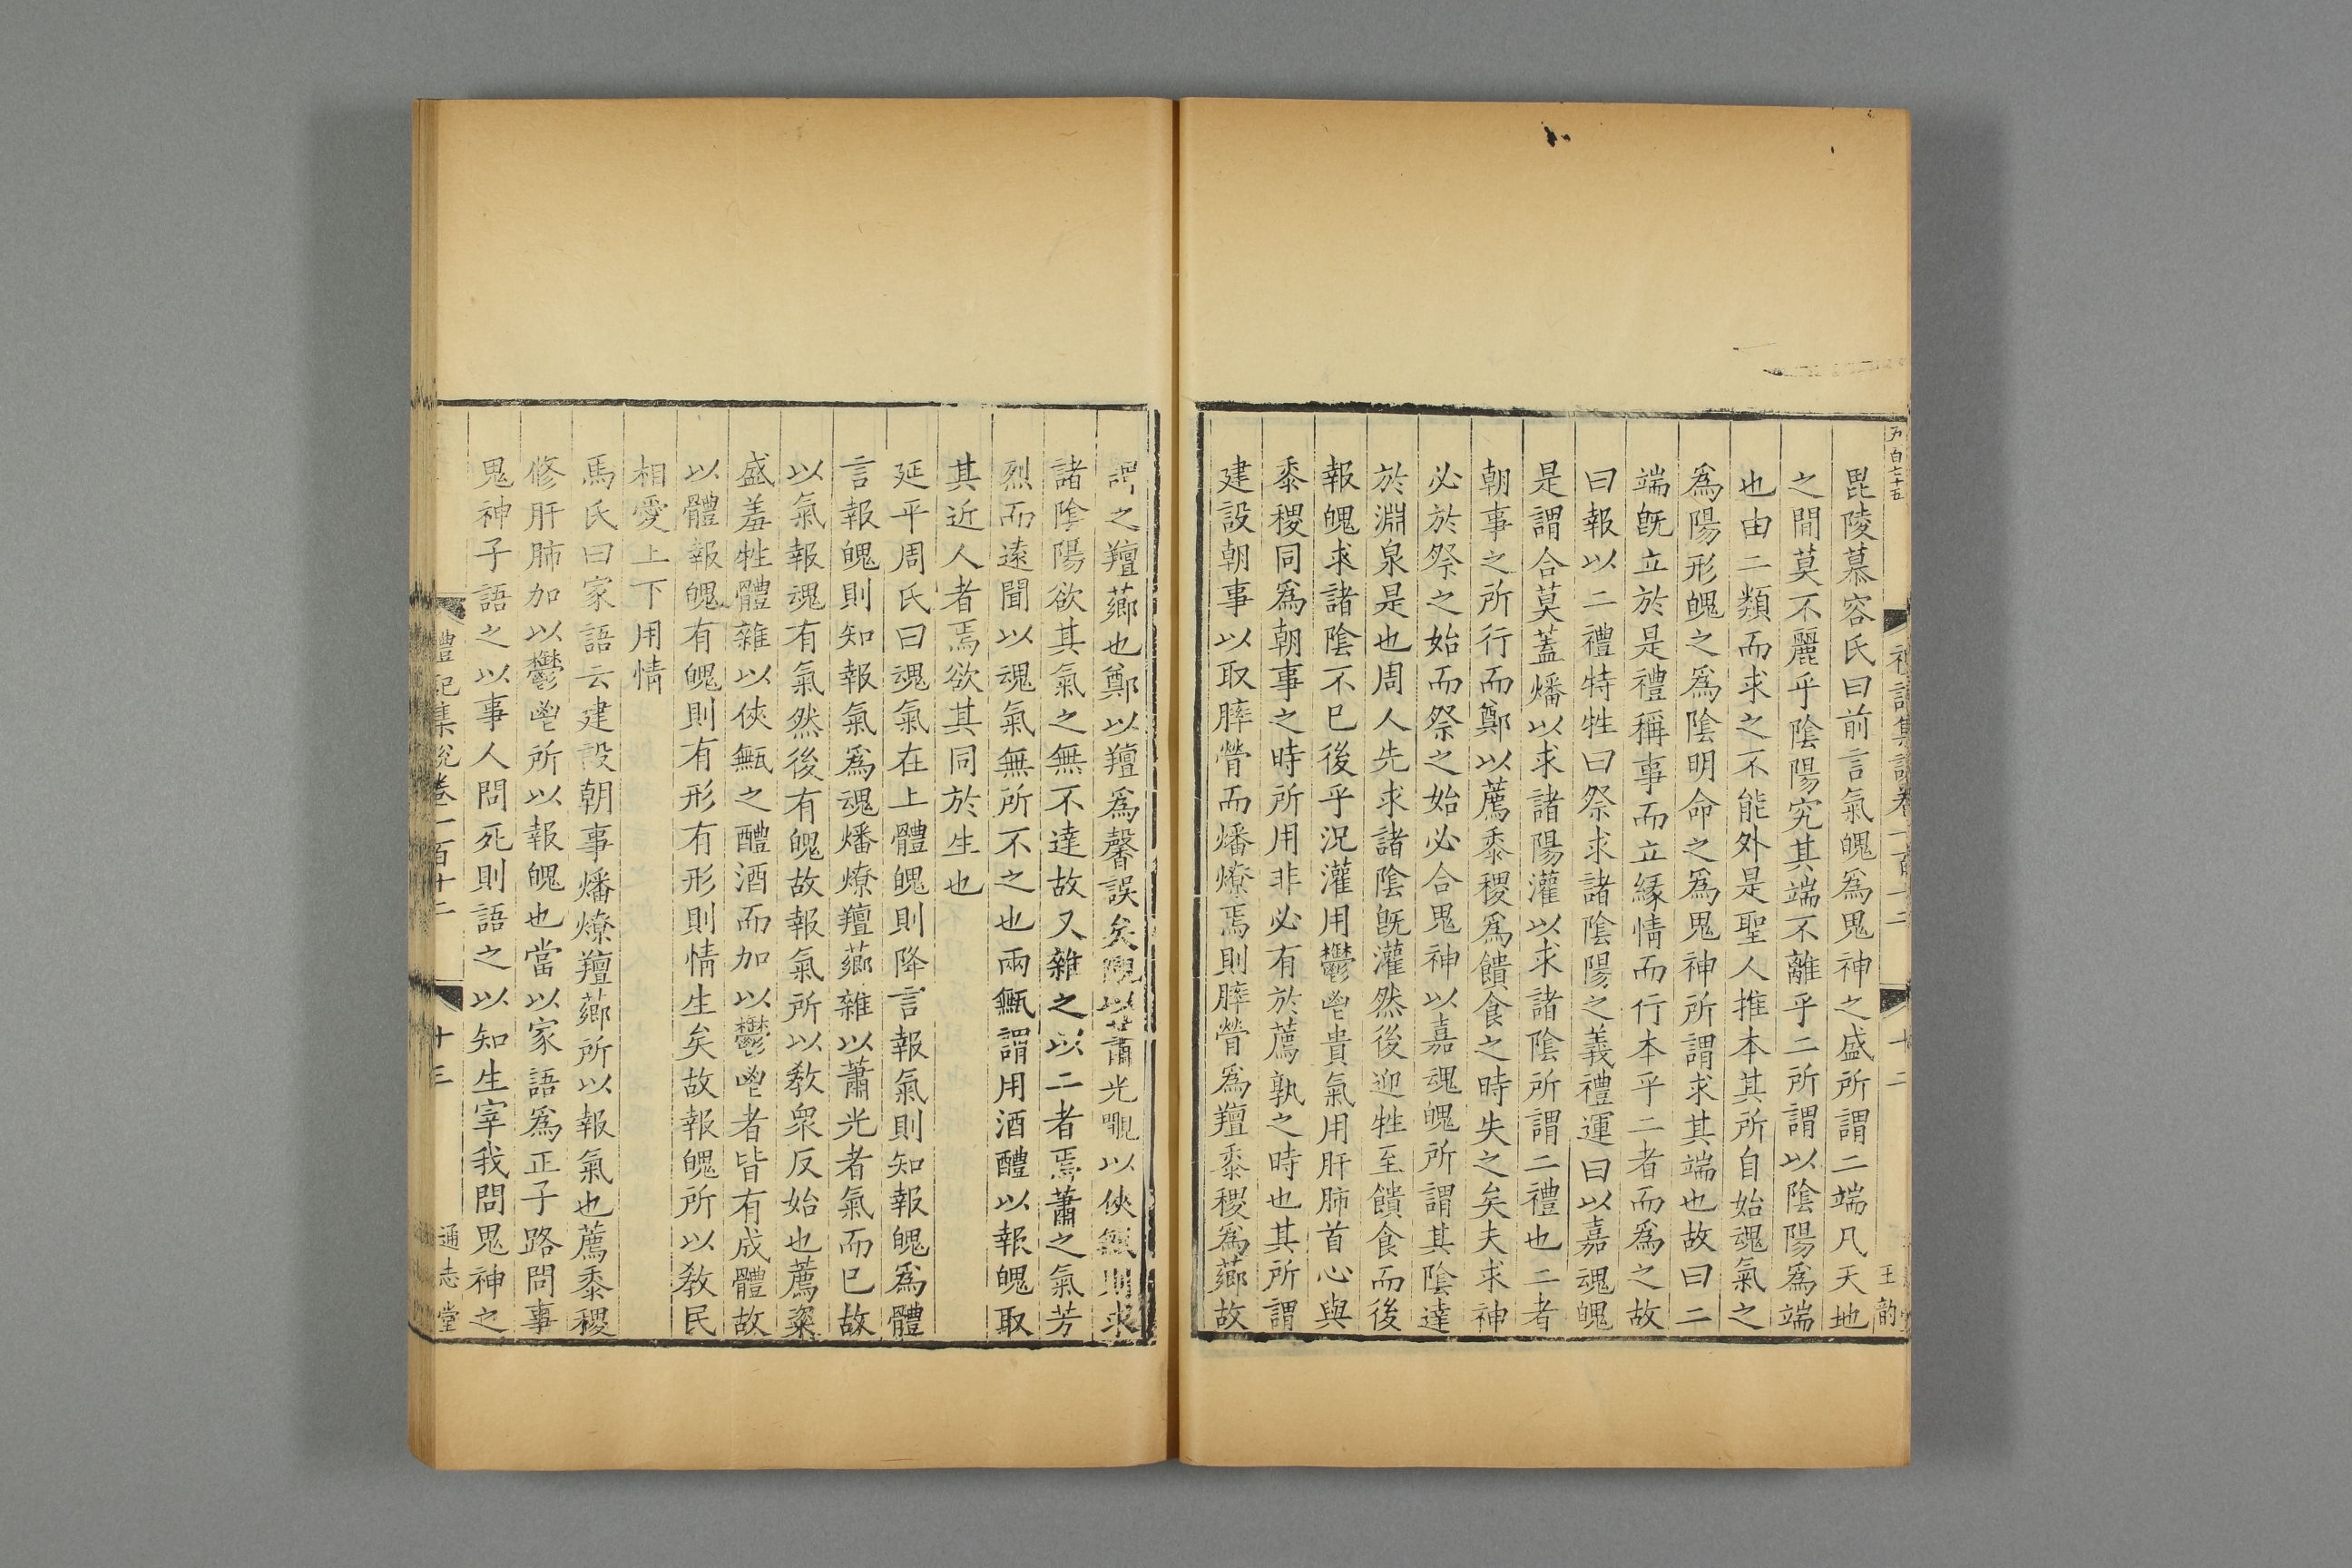 五百七十五
禮記集說卷一百十二
十二
王
韵
毘陵慕容氏曰前言氣魄爲鬼神之盛所謂二端凡天地
之間莫不麗乎陰陽究其端不離乎二所謂以陰陽爲端
也由二類而求之不能外是聖人推本其所自始魂氣之
爲陽形魄之爲陰明命之爲鬼神所謂求其端也故曰二
端旣立於是禮稱事而立緣情而行本乎二者而爲之故
曰報以二禮特牲曰祭求諸陰陽之義禮運曰以嘉魂魄
是謂合莫蓋燔以求諸陽灌以求諸陰所謂二禮也二者
朝事之所行而鄭以薦黍稷爲饋食之時失之矣夫求神
必於祭之始而祭之始必合鬼神以嘉魂魄所謂其陰達
於淵泉是也周人先求諸陰旣灌然後迎牲至饋食而後
報魄求諸陰不已後乎況灌用鬱鬯貴氣用肝肺首心與
黍稷同爲朝事之時所用非必有於薦孰之時也其所謂
建設朝事以取膟膋而燔燎焉則膟膋爲羶黍稷爲薌故
謂之羶薌也鄭以羶爲馨誤矣覵以蕭光覵以俠甒則求
諸陰陽欲其氣之無不達故又雜之以二者焉蕭之氣芳
烈而遠聞以魂氣無所不之也兩甒謂用酒醴以報魄取
其近人者焉欲其同於生也
延平周氏曰魂氣在上體魄則降言報氣則知報魄爲體
言報魄則知報氣爲魂燔燎羶薌雜以蕭光者氣而已故
以氣報魂有氣然後有魄故報氣所以敎衆反始也薦粢
盛羞牲體雜以俠甒之醴酒而加以鬱鬯者皆有成體故
以體報魄有魄則有形有形則情生矣故報魄所以敎民
相愛上下用情
馬氏曰家語云建設朝事燔燎羶薌所以報氣也薦黍稷
修肝肺加以鬱鬯所以報魄也當以家語爲正子路問事
鬼神子語之以事人問死則語之以知生宰我問鬼神之
禮記集說卷一百十二
十三
通志堂